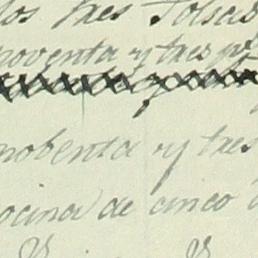 los tres Tolsas
noventa y tres p.
nobenta y tres
ocina de cinco